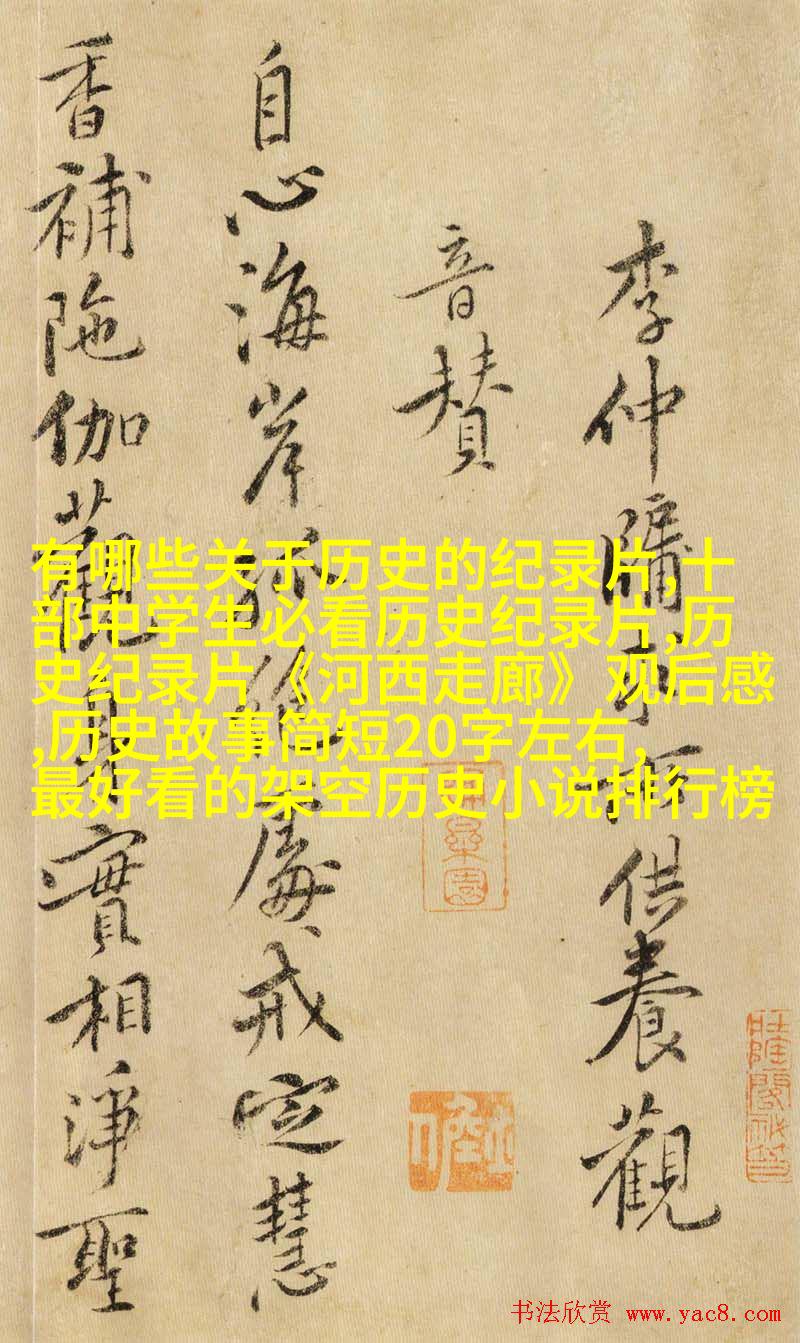 李仲牖供養觀
音賛
自心海岸孤絶處戒定慧
香補陁伽觀身實相淨聖
有哪些关于历史的纪录片,十
部中学生必看历史纪录片,历
史纪录片《河西走廊》观后感
,历史故事简短20字左右,
最好看的架空历史小说排行榜
书法欣赏 www.yac8.com